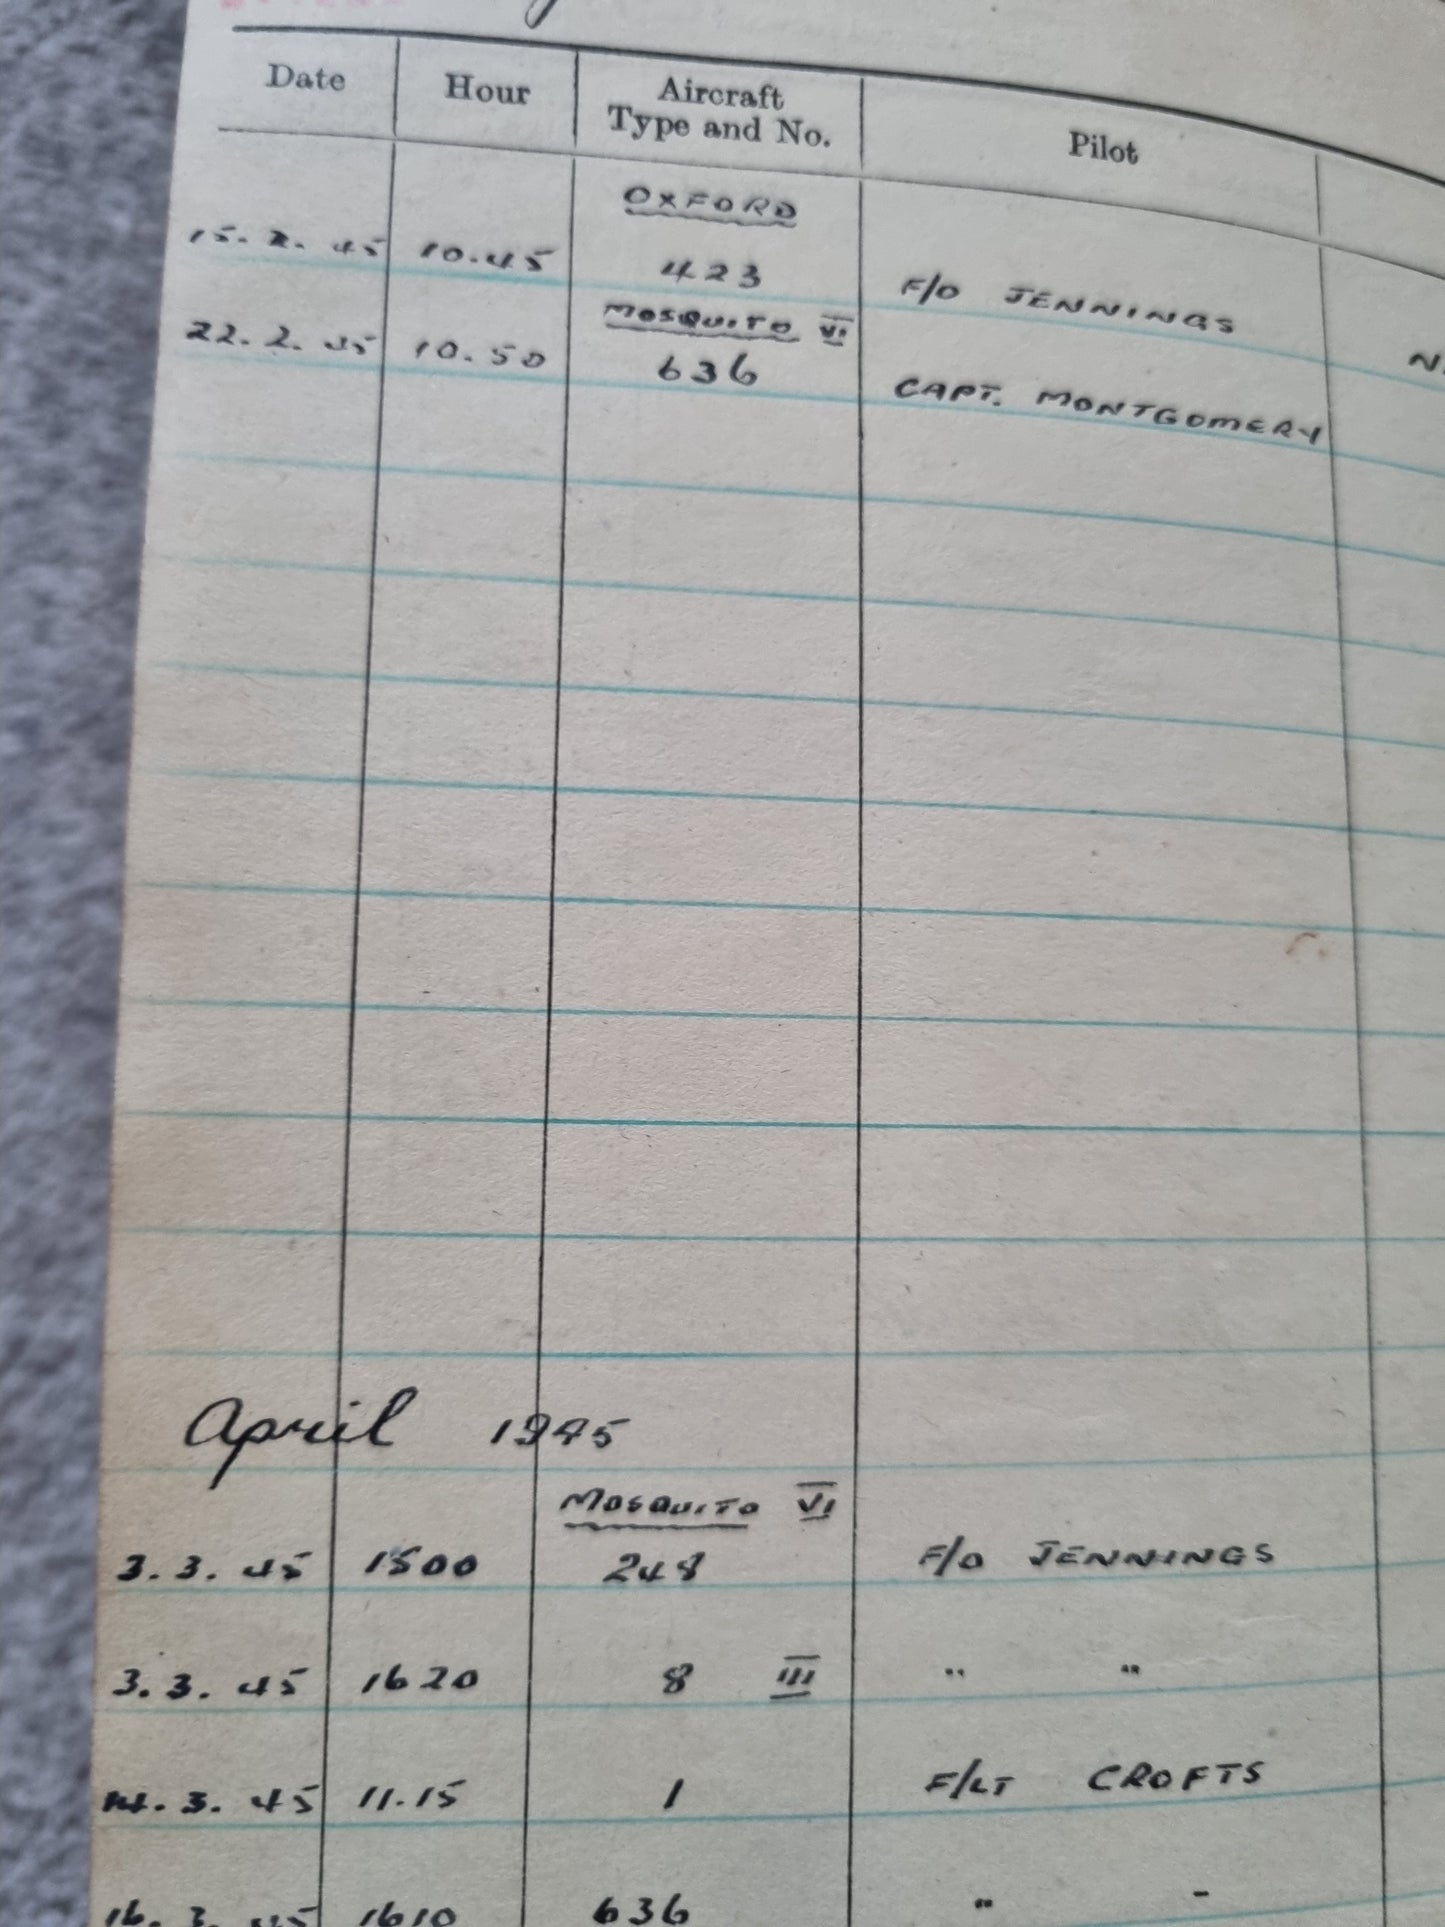 Date Hour Aircraft Type and No. Pilot
OXFORD
15.2.45 10.45 423 F/O JENNINGS
MOSQUITO VI
22.2.45 10.50 636 CAPT. MONTGOMERY
April 1945
MOSQUITO VI
3.3.45 1500 248 F/O JENNINGS
3.3.45 1620 8 III " "
14.3.45 11.15 1 F/LT CROFTS
16.3.45 1610 636 " -